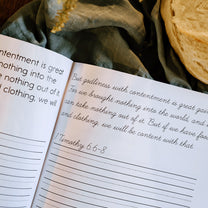 ntentment is great
nothing into the
e nothing out of it
clothing, we will
But godliness with contentment is great gain
For we brought nothing into the world, and
can take nothing out of it. But if we have foo
and clothing, we will be content with that.
1 Timothy 6:6-8